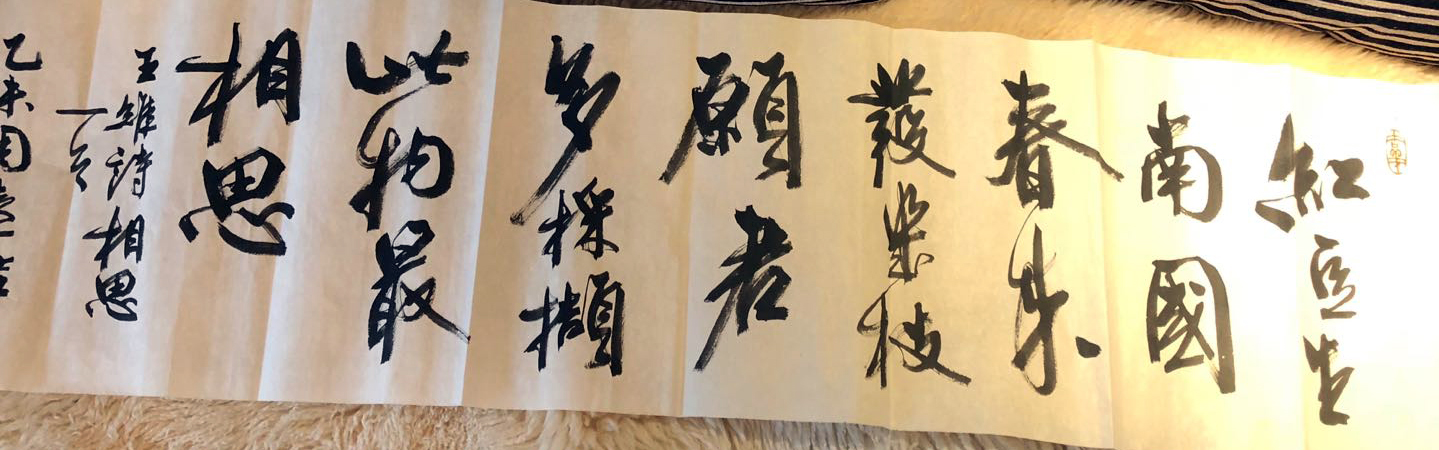 紅豆生
南國
春来
發幾枝
願君
多採擷
此物最
相思
王維詩相思
一首
乙未